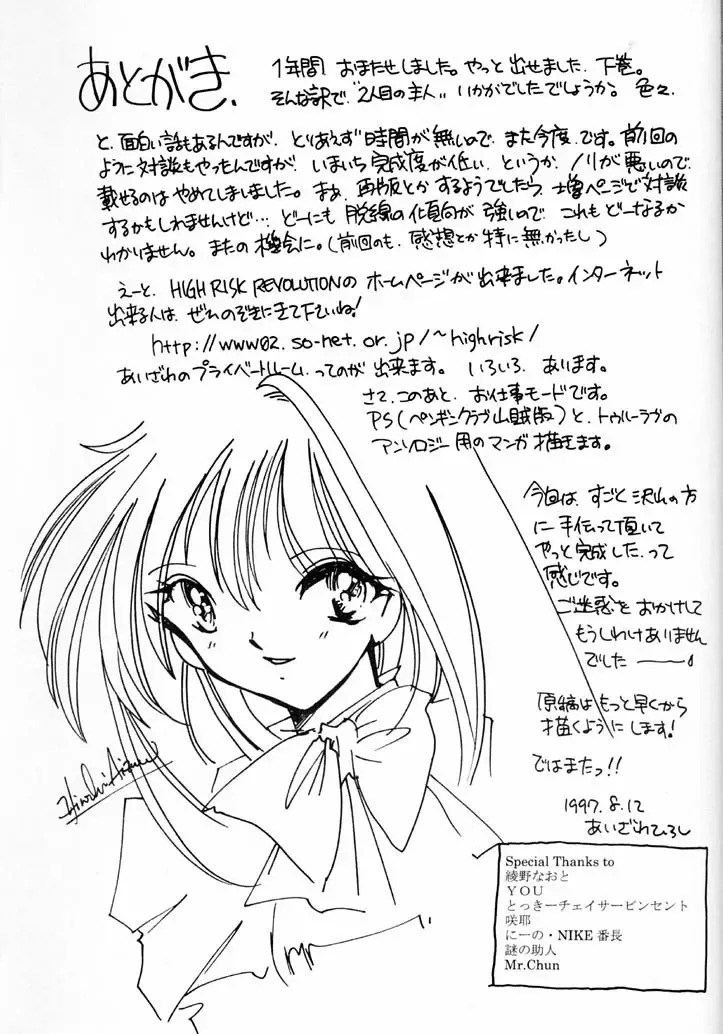 あとがき、
1年間、おまたせしました。やっと出せました、下巻。
そんな訳で、"2人目の主人"、いかがでしたでしょうか。色々
と、面白い話もあるんですが、とりあえず時間が無いので、また今度です。前回の
ように対談もやったんですが、いまいち完成度が低い、というか、ノリが悪いので、
載せるのはやめてしましました。まあ、再版とかするようでしたら、増ページで対談
するかもしれませんけど… どーにも脱線の傾向が強いので、これもどーなるか
わかりません。またの機会に。(前回のも、感想とか特に無かったし)
えーと、HIGH RISK REVOLUTIONのホームページが出来ました。インターネット
出来る人は、ぜひのぞきにきて下さいね!
http://www02.so-net.or.jp/~highrisk/
あいざわのプライベートルーム、ってのが出来ます。いろいろ、あります。
さて、このあと、お仕事モードです。
PS(ペンギンクラブ山賊版)と、トゥルーラヴの
アンソロジー用のマンガ描きます。
今回は、すごと沢山の方
に手伝って頂いて
やっと完成した、って
感じです。
ご迷惑をおかけして
もうしわけありません
でした――。
原稿はもっと早くから
描くようにします!
ではまたっ!!
1997.8.12
あいざわひろし
Hiroshi Aizawa
Special Thanks to
綾野なおと
YOU
とっきーチェイサービンセント
咲耶
にーの・NIKE番長
謎の助人
Mr.Chun